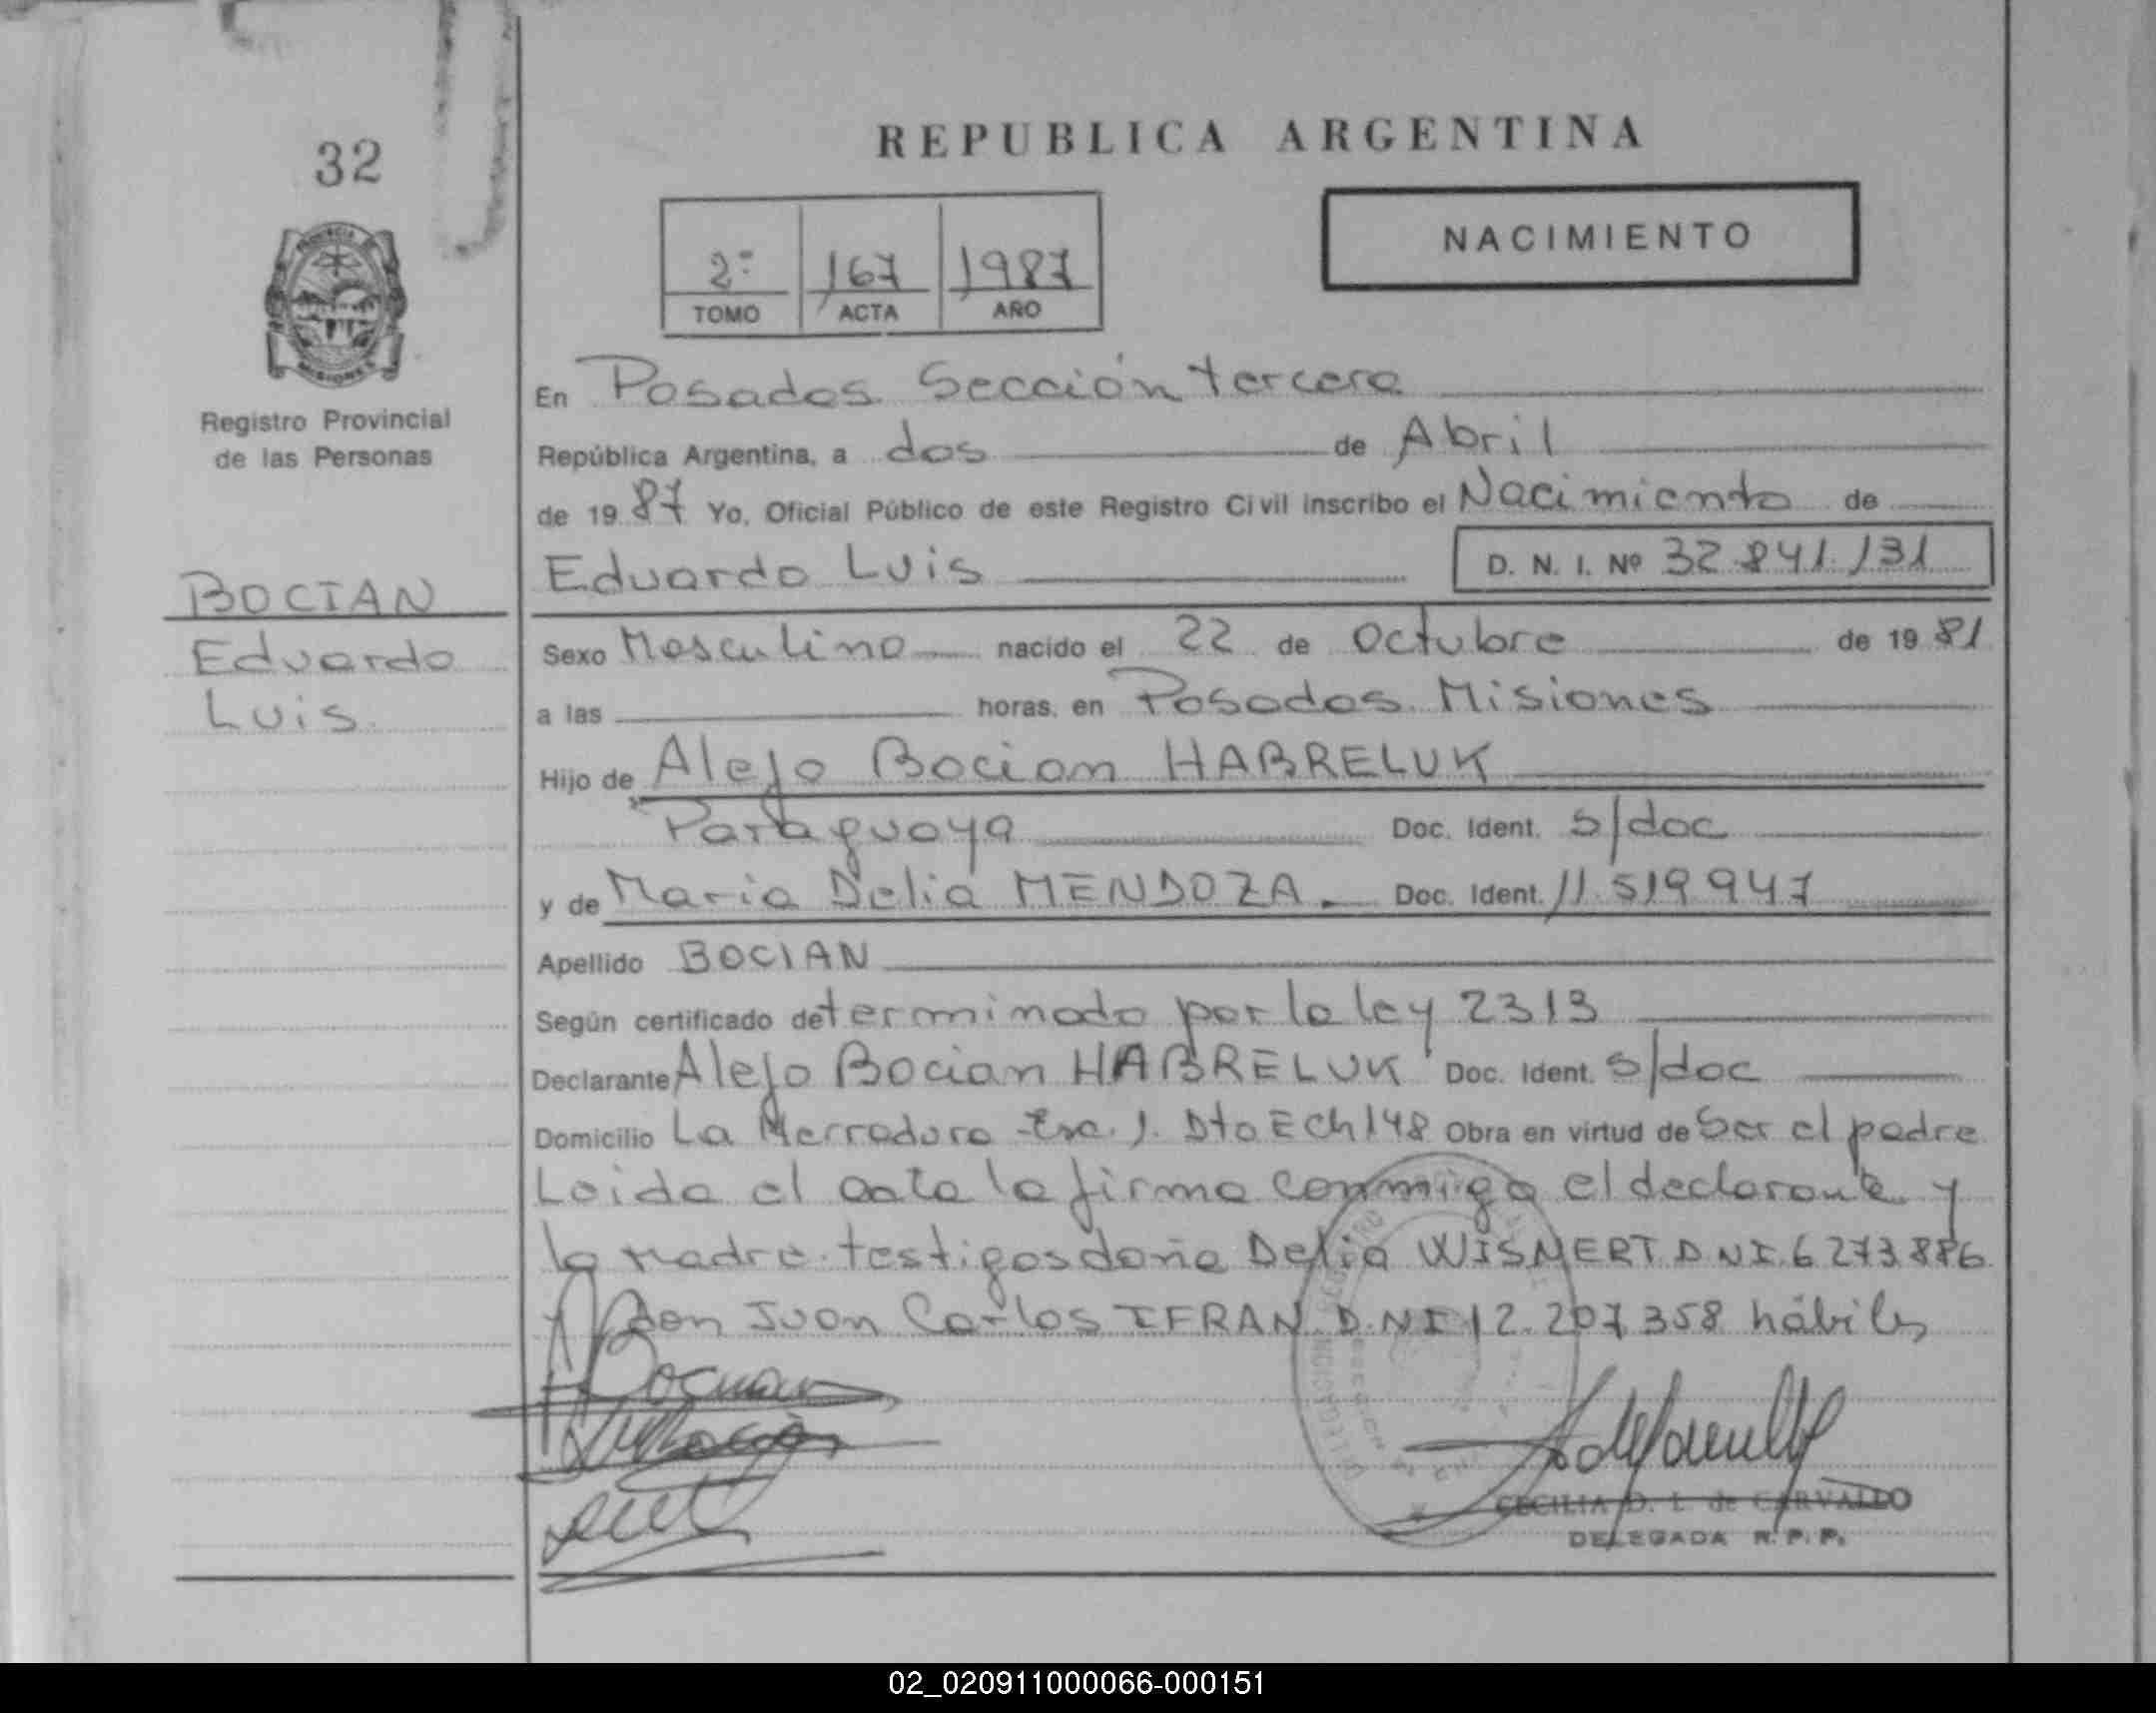 32
REPUBLICA ARGENTINA
NACIMIENTO
2º 167 1987
TOMO ACTA AÑO
PROVINCIA DE
MISIONES
Registro Provincial
de las Personas
BOCIAN
Eduardo
Luis
En Posadas Sección tercera
República Argentina, a dos de Abril
de 19 87 Yo, Oficial Público de este Registro Civil inscribo el Nacimiento de
Eduardo Luis D. N. I. Nº 32.841.131
Sexo Masculino nacido el 22 de Octubre de 19 81
a las horas, en Posadas Misiones
Hijo de Alejo Bocian HABRELUK
Paraguaya Doc. Ident. s/doc
y de Maria Delia MENDOZA. Doc. Ident. 11.519.947
Apellido BOCIAN
Según certificado determinado por la ley 2313
Declarante Alejo Bocian HABRELUK Doc. Ident. s/doc
Domicilio La Merradura Esc. 1. Dto ECh 148 Obra en virtud de Ser el padre
Leida el acta la firma conmigo el declarante y
la madre testigos doña Delia WISNERT D NI. 6 273.886
y don Juan Carlos IFRAN D.NI 12.207.358 hábiles
CECILIA D. L. de CARVALLO
DELEGADA R.P.P.
02_020911000066-000151